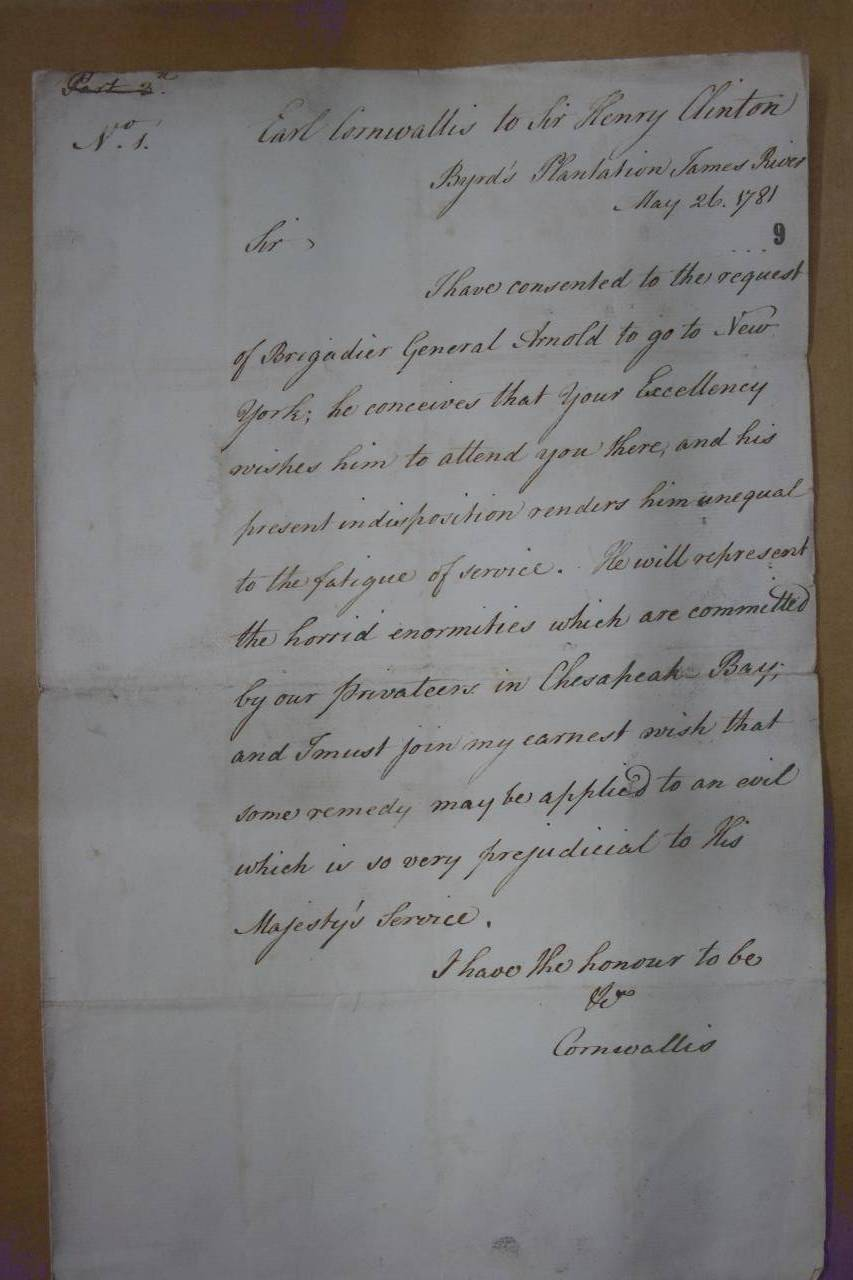 Part 2.d
No. 1.
Earl Cornwallis to Sir Henry Clinton
Byrd's Plantation James River
May 26. 1781
9
Sir,
I have consented to the request
of Brigadier General Arnold to go to New
York; he conceives that Your Excellency
wishes him to attend you there, and his
present indisposition renders him unequal
to the fatigue of service. He will represent
the horrid enormities which are committed
by our Privateers in Chesapeak Bay;
and I must join my earnest wish that
some remedy may be applied to an evil
which is so very prejudicial to His
Majesty's Service.
I have the honour to be
&c
Cornwallis